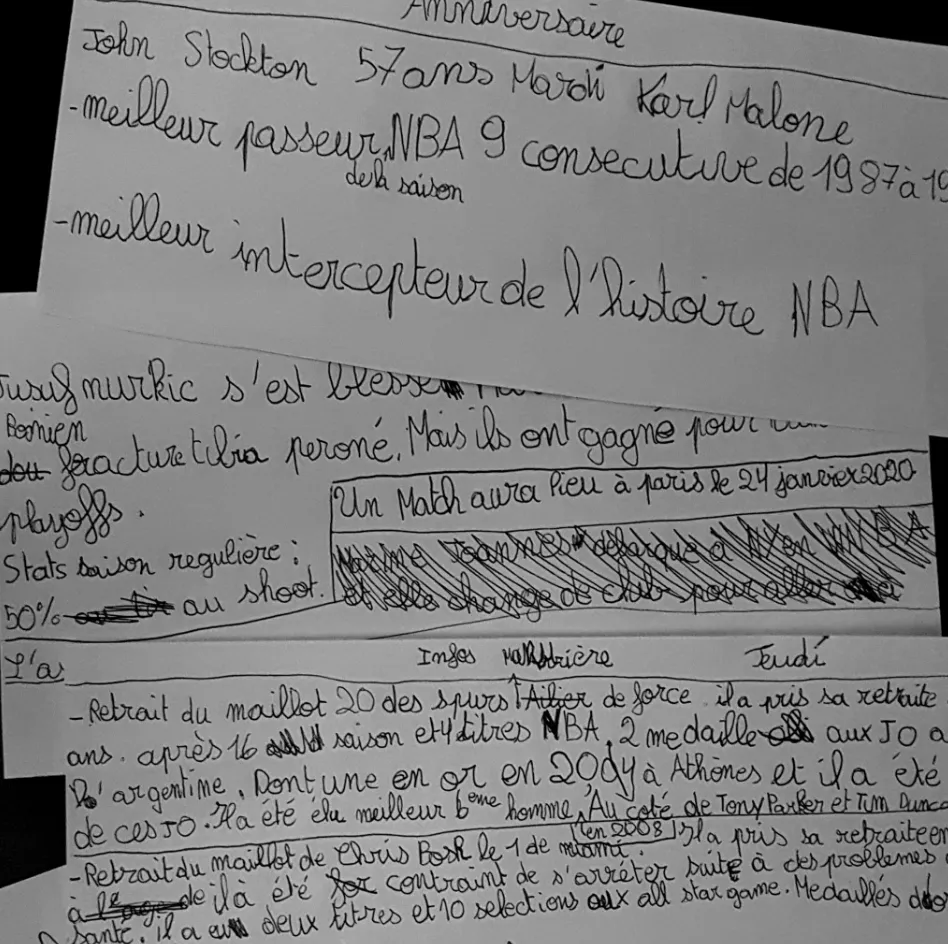 Anniversaire
John Stockton 57ans Mardi Karl Malone
-meilleur passeur NBA 9 consecutive de 1987 à 19
de la saison
-meilleur intercepteur de l'histoire NBA
nurkic s'est blesse
Bosnien
fracture tibia peroné. Mais ils ont gagné pour
playoffs.
Un Match aura lieu à paris le 24 janvier 2020
Stats saison regulière :
50% au shoot.
et elle change de club pour aller
L'a
Infos Jeudi
-Retrait du maillot 20 des spurs Ailier de force. il a pris sa retraite
ans. après 16 saison et 4 titres NBA, 2 medaille aux JO a
l'argentine. Dont une en or en 2004 à Athènes et il a été
de ces JO. Il a été élu meilleur 6eme homme. Au coté de Tony Parker et Tim Dunca
(en 2008)
-Retrait du maillot de Chris Bosh le 1 de miami. Il a pris sa retraite en
à de il à été contraint de s'arrêter suite à des problèmes
santé. il a deux titres et 10 selections aux all star game. Medaillés